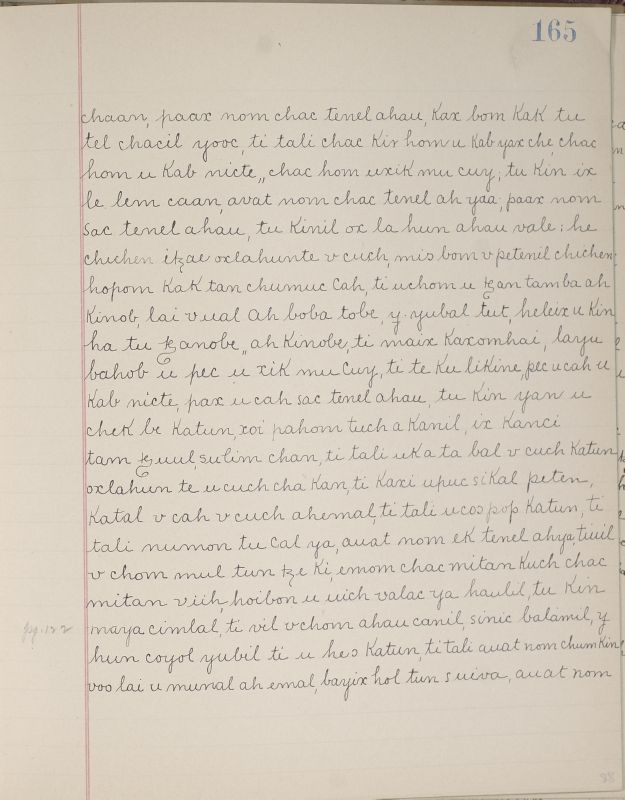 165
chaan, paax nom chac tenel ahau, Kax bom Kak tu
tel chacil yooc, ti tali chac Kir hom u Kab yax che, chac
hom u Kab nicte,, chac hom uxik mu cuy; tu Kin ix
le lem caan, avat nom chac tenel ah yaa; paax nom
sac tenel ahau, tu Kinil ox la hun ahau vale: he
chichen itzae oxlahunte v cuch, mis bom v petenil chichen
hopom Kak tan chumuc Cah, ti uchom u tzan tamba ah
Kinob, lai v ual Ah boba tobe, y. yubal tut, heleix u Kin
ha tu tzanobe,, ah Kinobe, ti maix Kaxomhai, layu
bahob u pec u xik mu Cuy, ti te Ku likine, pec u cah u
Kab nicte, pax u cah sac tenel ahau, tu Kin yan u
chek be Katun, xoi pahom tuch a Kanil, ix Kanci
tam tzuul, sulim chan, ti tali uKa ta bal v cuch Katun
oxlahun te u cuch cha Kan, ti Kaxi upuc siKal peten,
Katal v cah v cuch ahemal, ti tali ucos pop Katun, ti
tali numon tu Cal ya, auat nom ek tenel ahya, tiuil
v chom mul tun tze Ki, emom chac mitan Kuch chac
mitan viih, hoibon u uich valac ya haulil, tu Kin
maya cimlal, ti vil vchom ahau canil, sinic balamil, y
hun coyol yubil ti u hes Katun, ti tali auat nom chum Kin
voo lai u munal ah emal, bayix hol tun suiva, auat nom
pg. 122
88